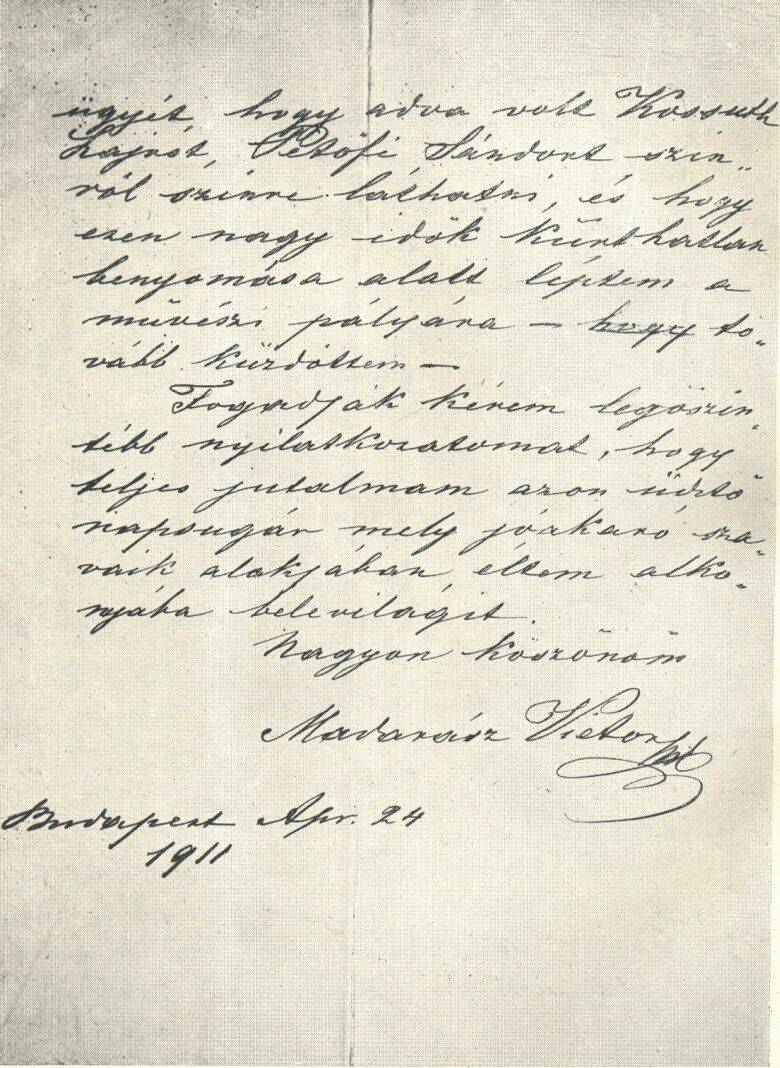 ügyét, hogy adva volt Kossuth
Lajost, Petőfi Sándort szin„
ről szinre láthatni, és hogy
ezen nagy idők
benyomása alatt léptem a
művészi pályára – hogy to„
vább küzdöttem –
Fogadják kérem legőszin„
tébb nyilatkozatomat, hogy
teljes jutalmam azon üdítő
napsugár mely jóakaró sza„
vaik alakjában, éltem alko„
nyába belevilágit.
Nagyon köszönöm
Madarász Victor
Budapest Apr. 24
1911